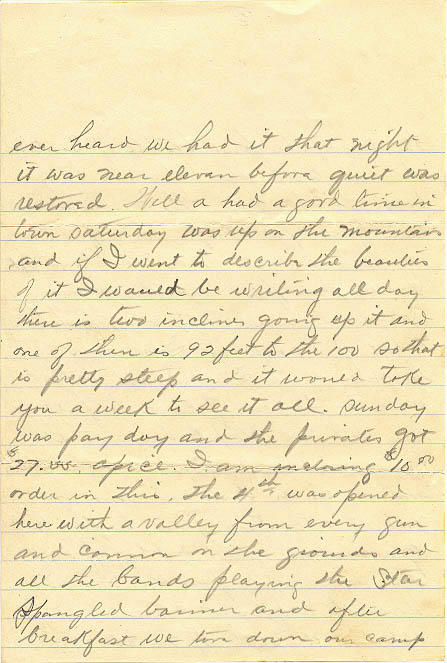 ever heard we had it that night
it was near elevan before quiet was
restored. Will a had a good time in
town saturday was up on the mountain
and if I went to describe the beauties
of it I would be writing all day
there is two inclines going up it and
one of them is 92 feet to the 100 so that
is pretty steep and it would take
you a week to see it all. sunday
was pay day and the privates got
apice. I am inclosing $10.00
order in this. The 4th was opened
here with a valley from every gun
and cannon on the grounds and
all the bands playing the Star
Spangled banner and after
breakfast we torn down our camp